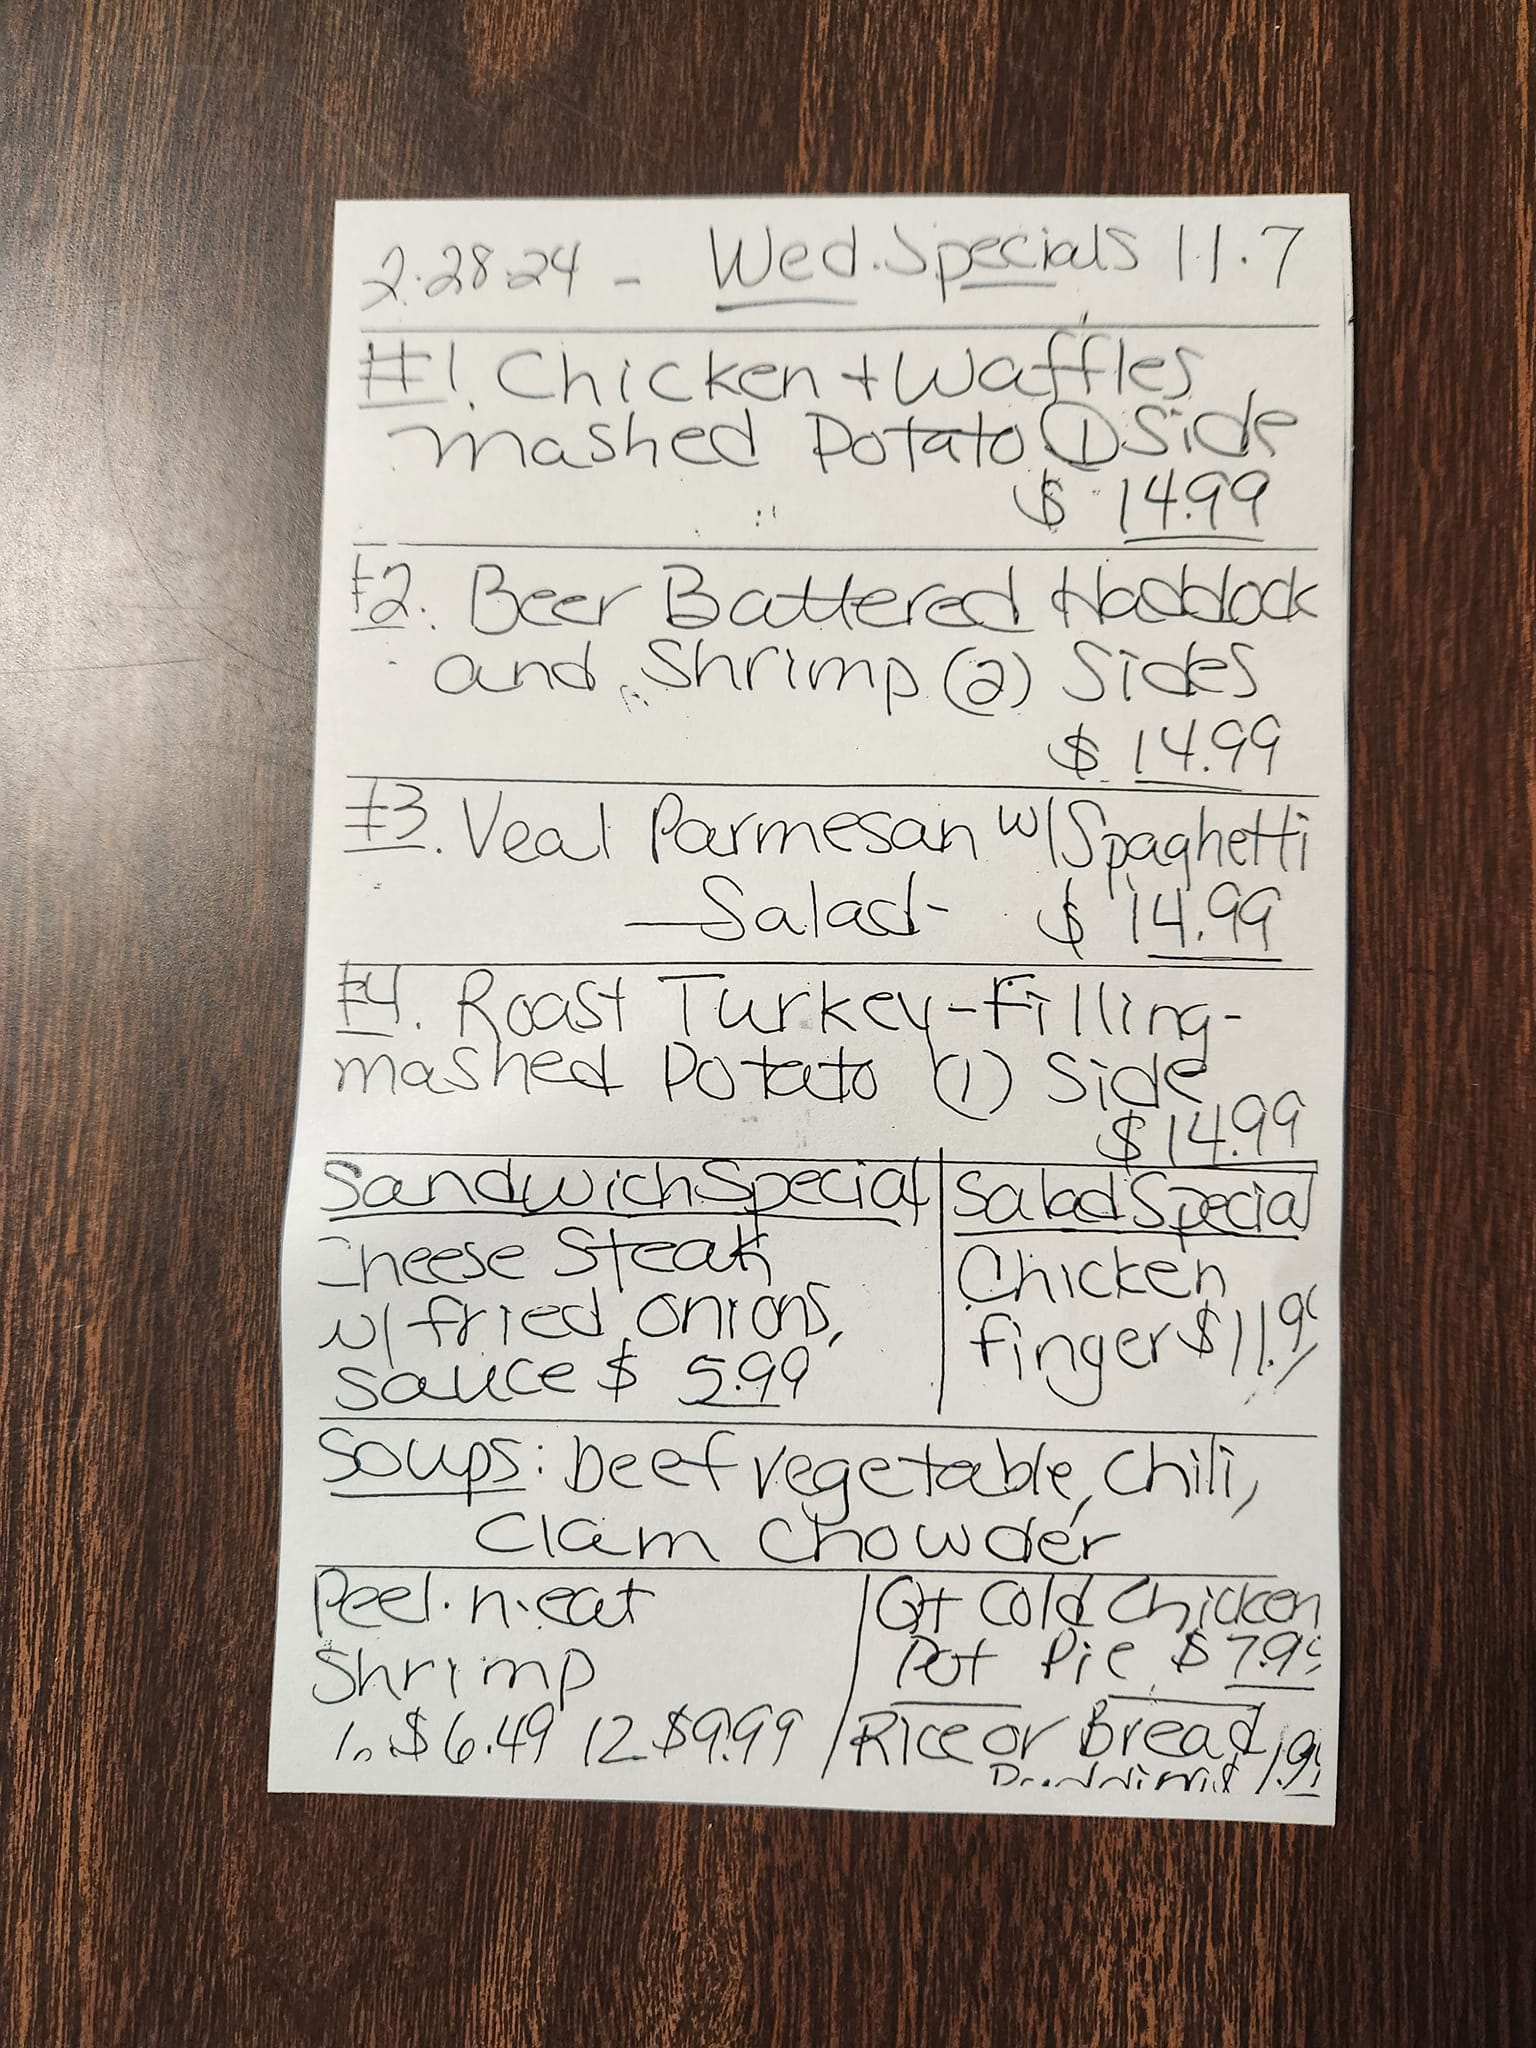 2.28.24 - Wed. Specials 11.7
#1. Chicken + Waffles
mashed Potato (1) Side
$ 14.99
#2. Beer Battered Haddock
and Shrimp (2) Sides
$ 14.99
#3. Veal Parmesan w/Spaghetti
-Salad- $ 14.99
#4. Roast Turkey-Filling-
mashed Potato (1) Side
$14.99
Sandwich Special
Cheese Steak
w/ fried onions,
Sauce $ 5.99
Salad Special
Chicken
finger $11.99
Soups: beef vegetable, chili,
Clam Chowder
Peel.n.eat
Shrimp
$6.49 12 $9.99
Qt Cold Chicken
Pot Pie $7.99
Rice or Bread
1.99